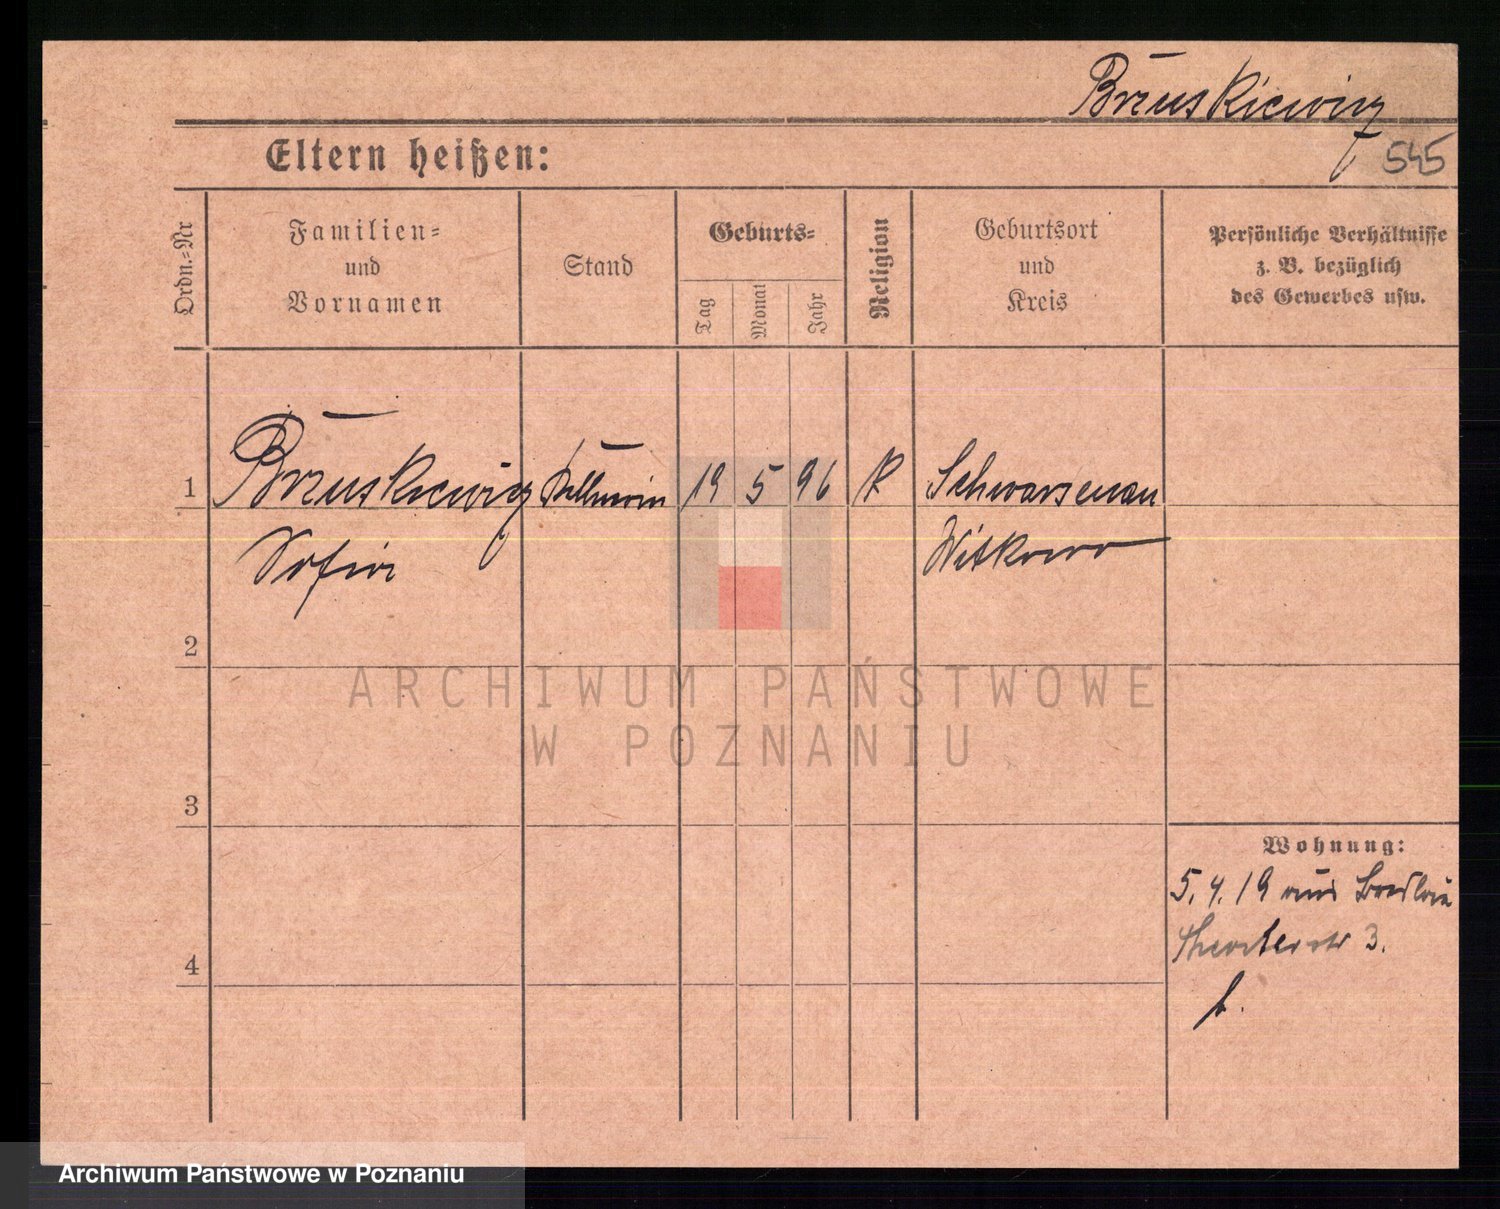 Bruskiewicz
545
Eltern heißen:
Ordn.=Nr
Familien=
und
Vornamen
Stand
Geburts=
Tag
Monat
Jahr
Religion
Geburtsort
und
Kreis
Persönliche Verhältnisse
z. B. bezüglich
des Gewerbes usw.
1
Bruskiewicz
19
5
96
K
Schwarzenau
Sofie
Witkowo
2
ARCHIWUM PAŃSTWOWE
W POZNANIU
3
Wohnung:
5.4.19 aus Breslau
3.
4
Archiwum Państwowe w Poznaniu